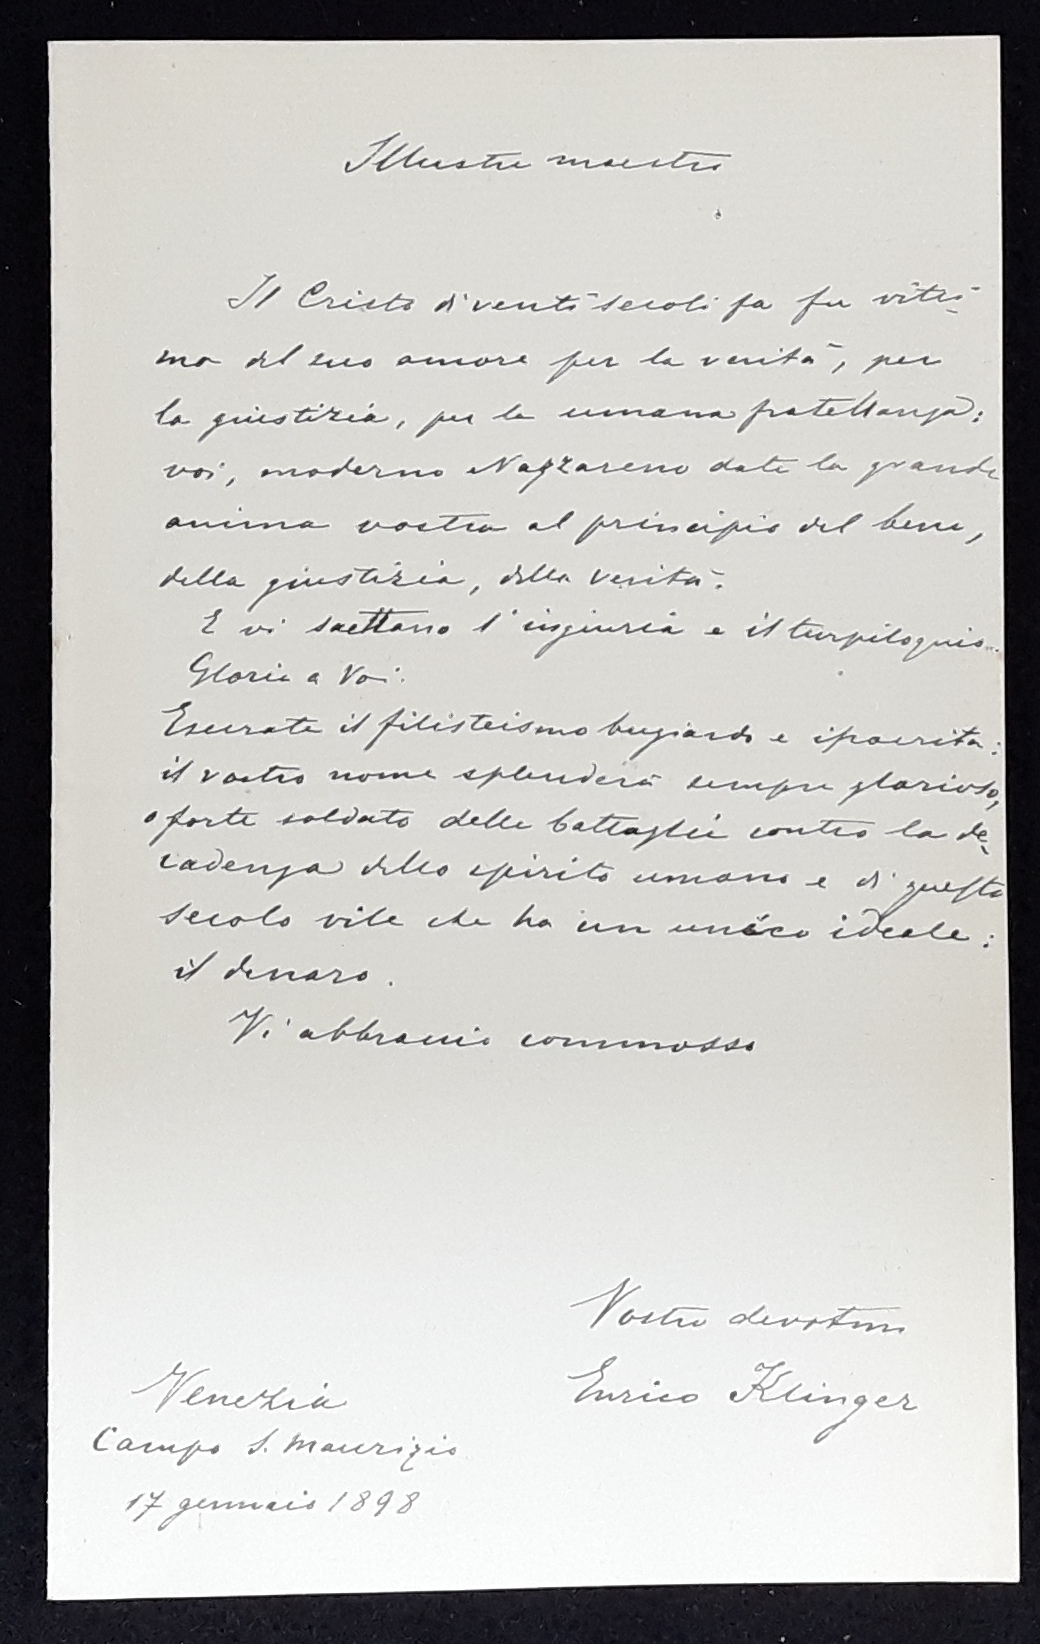 Illustre maestro
Il Cristo di venti secoli fa fu vitti-
ma del suo amore per la verità, per
la giustizia, per la umana fratellanza;
voi, moderno Nazzareno date la grande
anima vostra al principio del bene,
della giustizia, della verità.
E vi saettano l'ingiuria e il turpiloquio...
Gloria a Voi.
Esecrate il filisteismo bugiardo e ipocrita:
il vostro nome splenderà sempre glorioso,
o forte soldato delle battaglie contro la de-
cadenza dello spirito umano e di questo
secolo vile che ha un unico ideale:
il denaro.
Vi abbraccio commosso
Vostro devotmo
Enrico Klinger
Venezia
Campo S. Maurizio
17 gennaio 1898